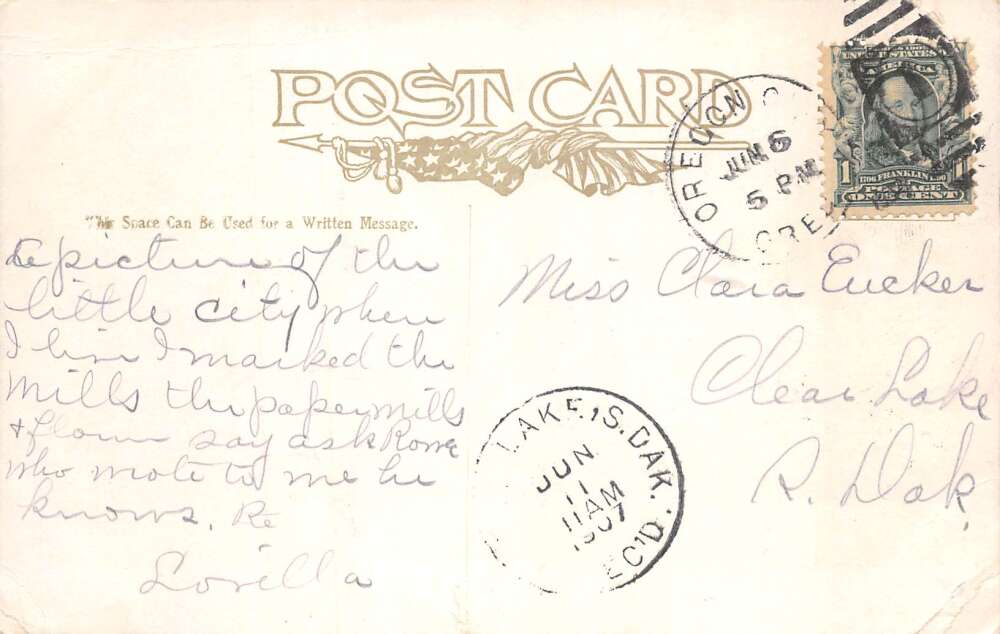 POST CARD
This Space Can Be Used for a Written Message.
OREGON C
JUN 6
5 PM
ORE
UNITED STATES OF
AMERICA
1
FRANKLIN
POSTAGE
ONE CENT
1
a picture of the
little city where
I live I marked the
mills the paper mills
& flour say ask
who wrote to me he
knows. Re
Lovilla
Miss Clara Eucker
Clear Lake
S. Dak.
LAKE, S. DAK.
JUN
11
11 AM
1907
REC'D.